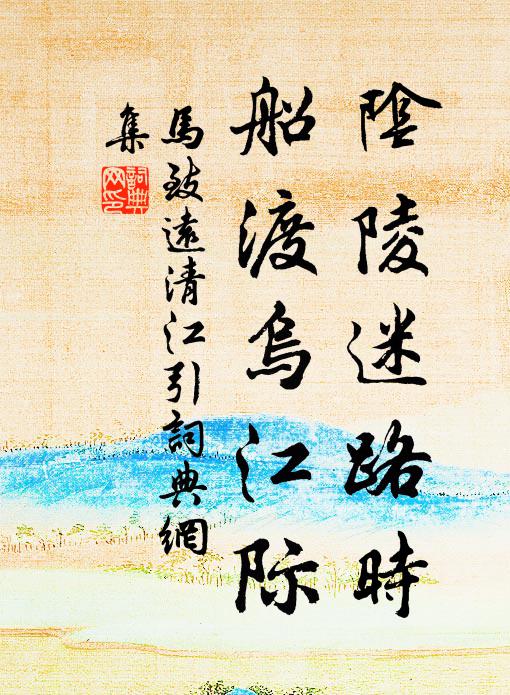 陰陵迷路時
船渡烏江际
馬致遠清江引詞典網
集
詞典網印